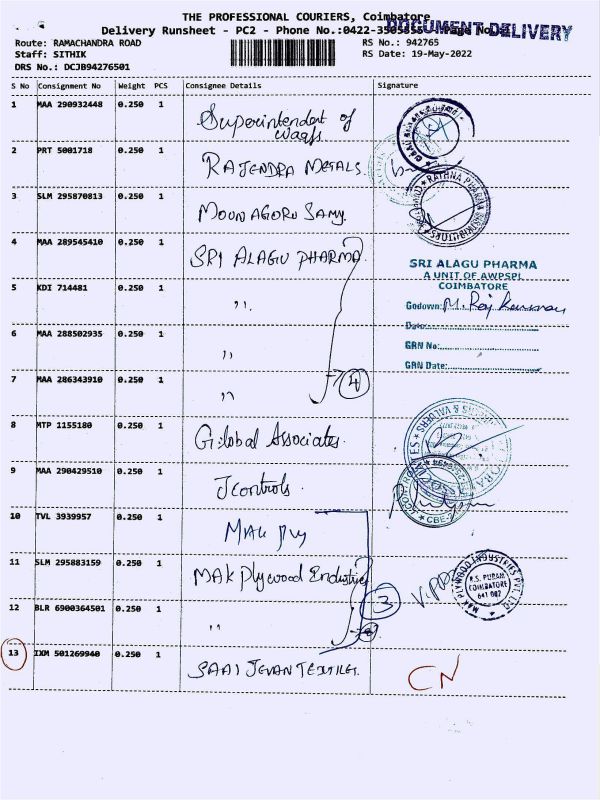 THE PROFESSIONAL COURIERS, Coimbatore
Delivery Runsheet - PC2 - Phone No.:0422-
DOCUMENT DELIVERY
Route: RAMACHANDRA ROAD
RS No.: 942765
Staff: SITHIK
RS Date: 19-May-2022
DRS No.: DCJB94276501
S No Consignment No Weight PCS Consignee Details Signature
1 MAA 290932448 0.250 1 Superintendent of
waqfs
2 PRT 5001718 0.250 1 RAJENDRA METALS.
3 SLM 295870813 0.250 1 MOONAGORU SAMY.
4 MAA 289545410 0.250 1 SRI ALAGU PHARMA
SRI ALAGU PHARMA
A UNIT OF AWPSPL
COIMBATORE
5 KDI 714481 0.250 1 ,,
Godown: M. Raj Kumar
Date:
6 MAA 288502935 0.250 1 ,,
GRN No:
GRN Date:
7 MAA 286343910 0.250 1 ,, 4
8 MTP 1155180 0.250 1 Global Associates.
9 MAA 290429510 0.250 1 Jcontrols.
10 TVL 3939957 0.250 1 MAK Ply
11 SLM 295883159 0.250 1 MAK Plywood Endustries
MAK PLYWOOD INDUSTRIES PVT. LTD
R.S. PURAM,
COIMBATORE
641 002
12 BLR 6900364501 0.250 1 ,, 3
13 IXM 501269940 0.250 1 SAAI JEVAN TEXTILES.
CN